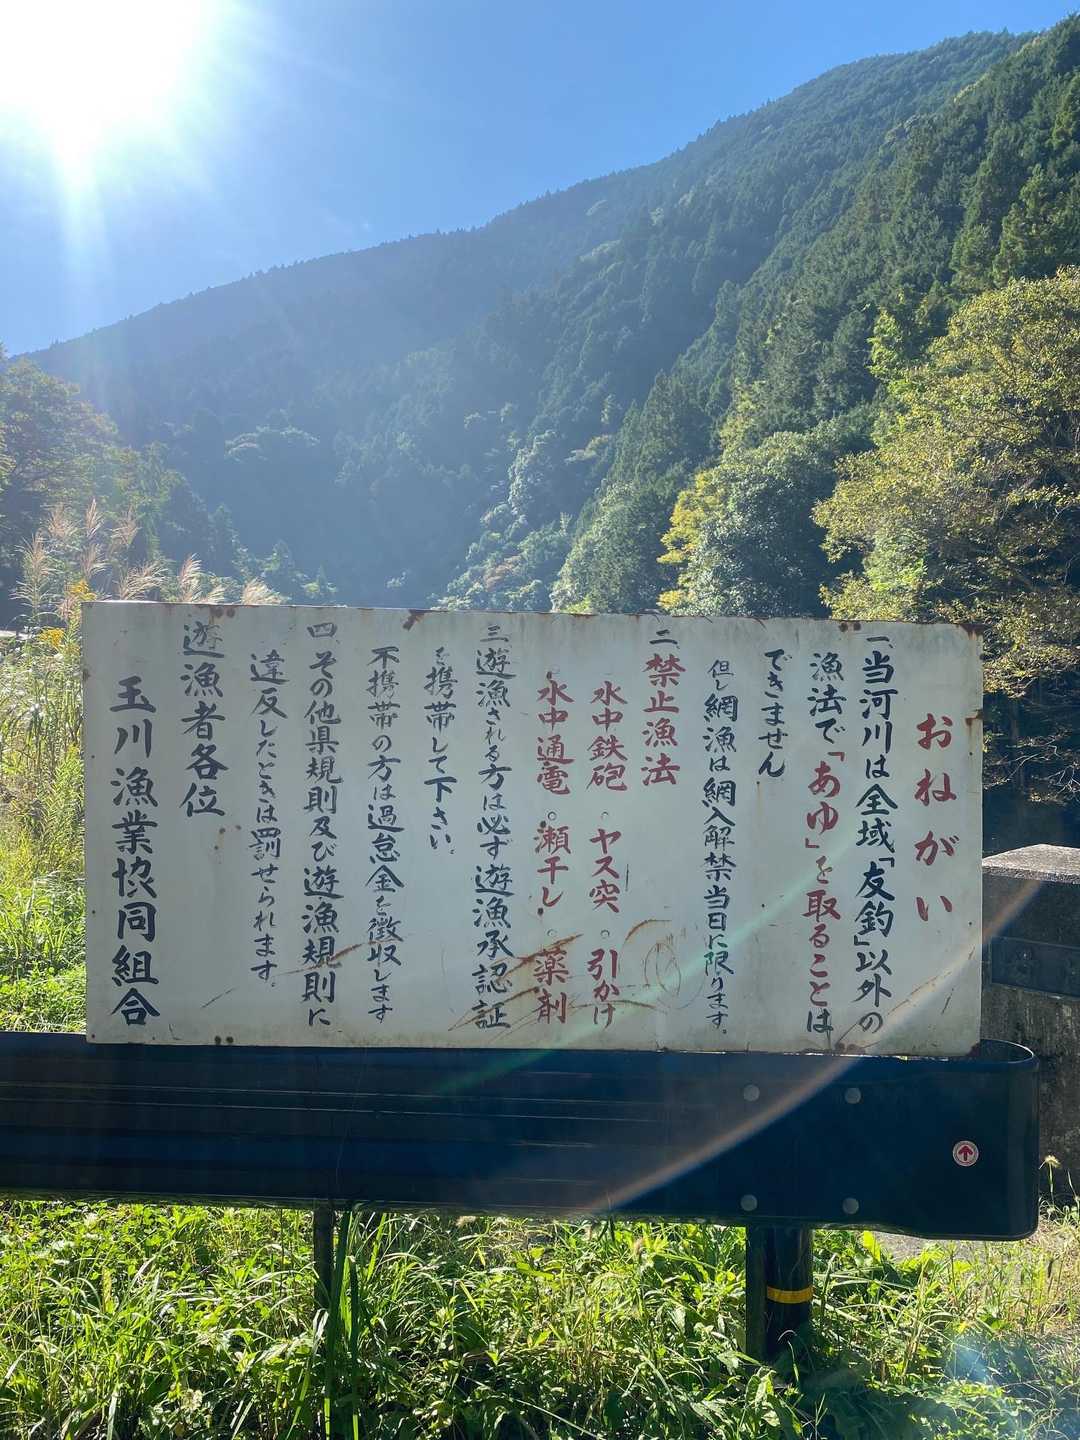 おねがい
一、当河川は全域「友釣」以外の
漁法で「あゆ」を取ることは
できません
但し網漁は網入解禁当日に限ります。
二、禁止漁法
水中鉄砲。ヤス突。引かけ
水中通電。瀬干し。薬剤
三、遊漁される方は必ず遊漁承認証
を携帯して下さい。
不携帯の方は過怠金を徴収します
四、その他県規則及び遊漁規則に
違反したときは罰せられます。
遊漁者各位
玉川漁業協同組合